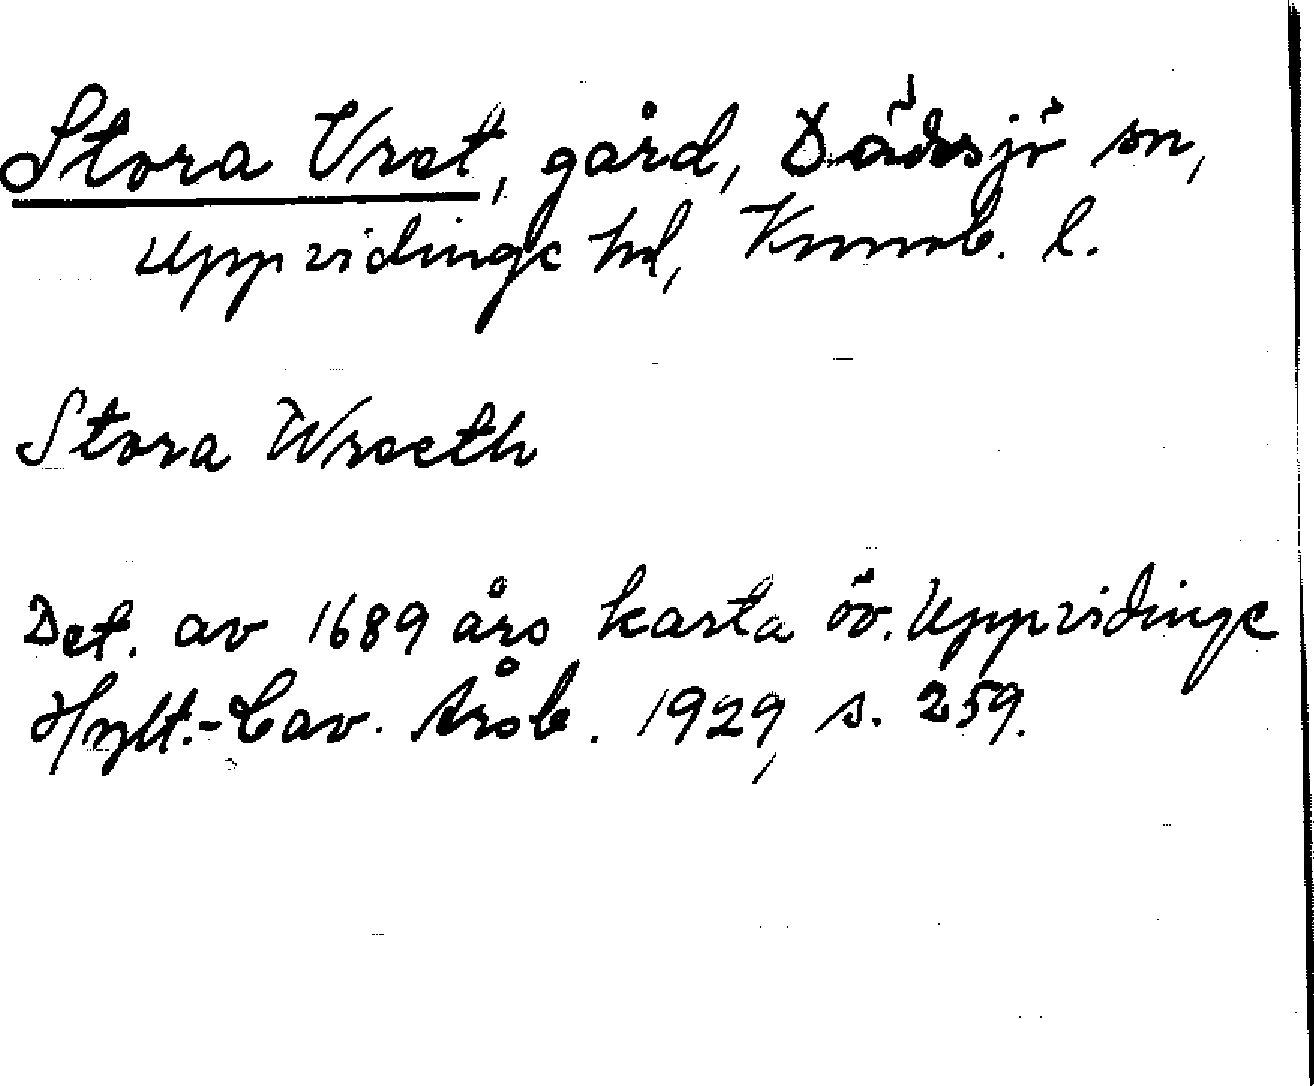 Stora Vret, gård, Dädesjö sn,
Uppvidinge hd, Kronob. l.
Stora Wreeth
Det. av 1689 års karta öv. Uppvidinge
Hylt.-Cav. Årsb. 1929, s. 259.